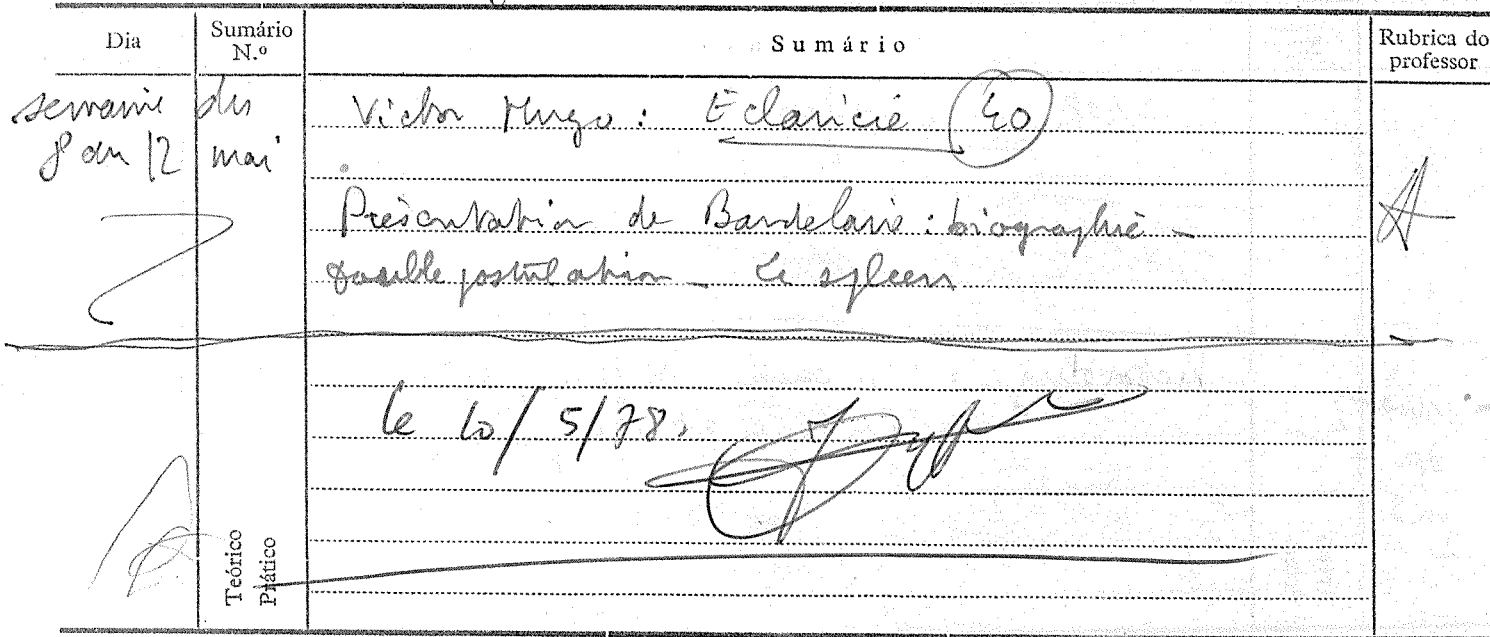 Dia
Sumário N.º
Sumário
Rubrica do professor
semaine du
8 au 12 mai
Victor Hugo : Eclaircie 40
Présentation de Baudelaire : biographie -
double postulation - Le spleen
le 10/5/78.
Teórico
Prático